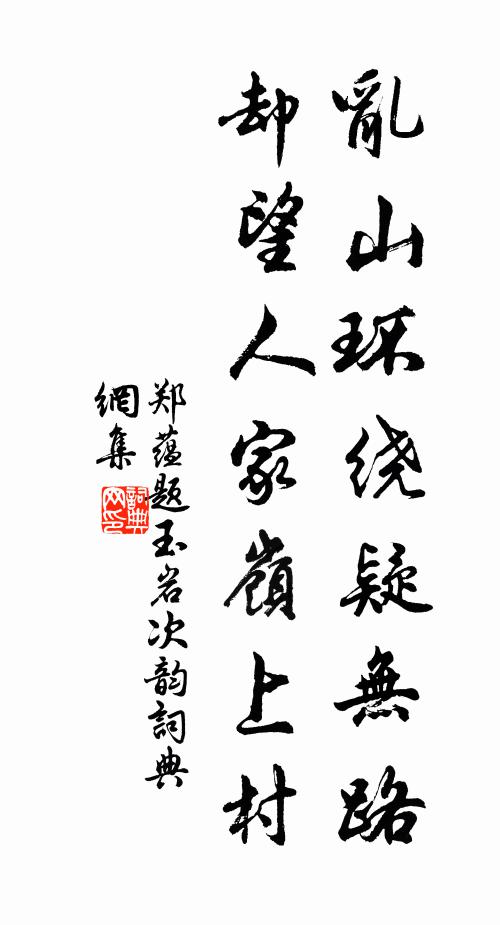 亂山环绕疑無路
却望人家嶺上村
郑蕴题玉岩次韵詞典
網集
詞典
网印